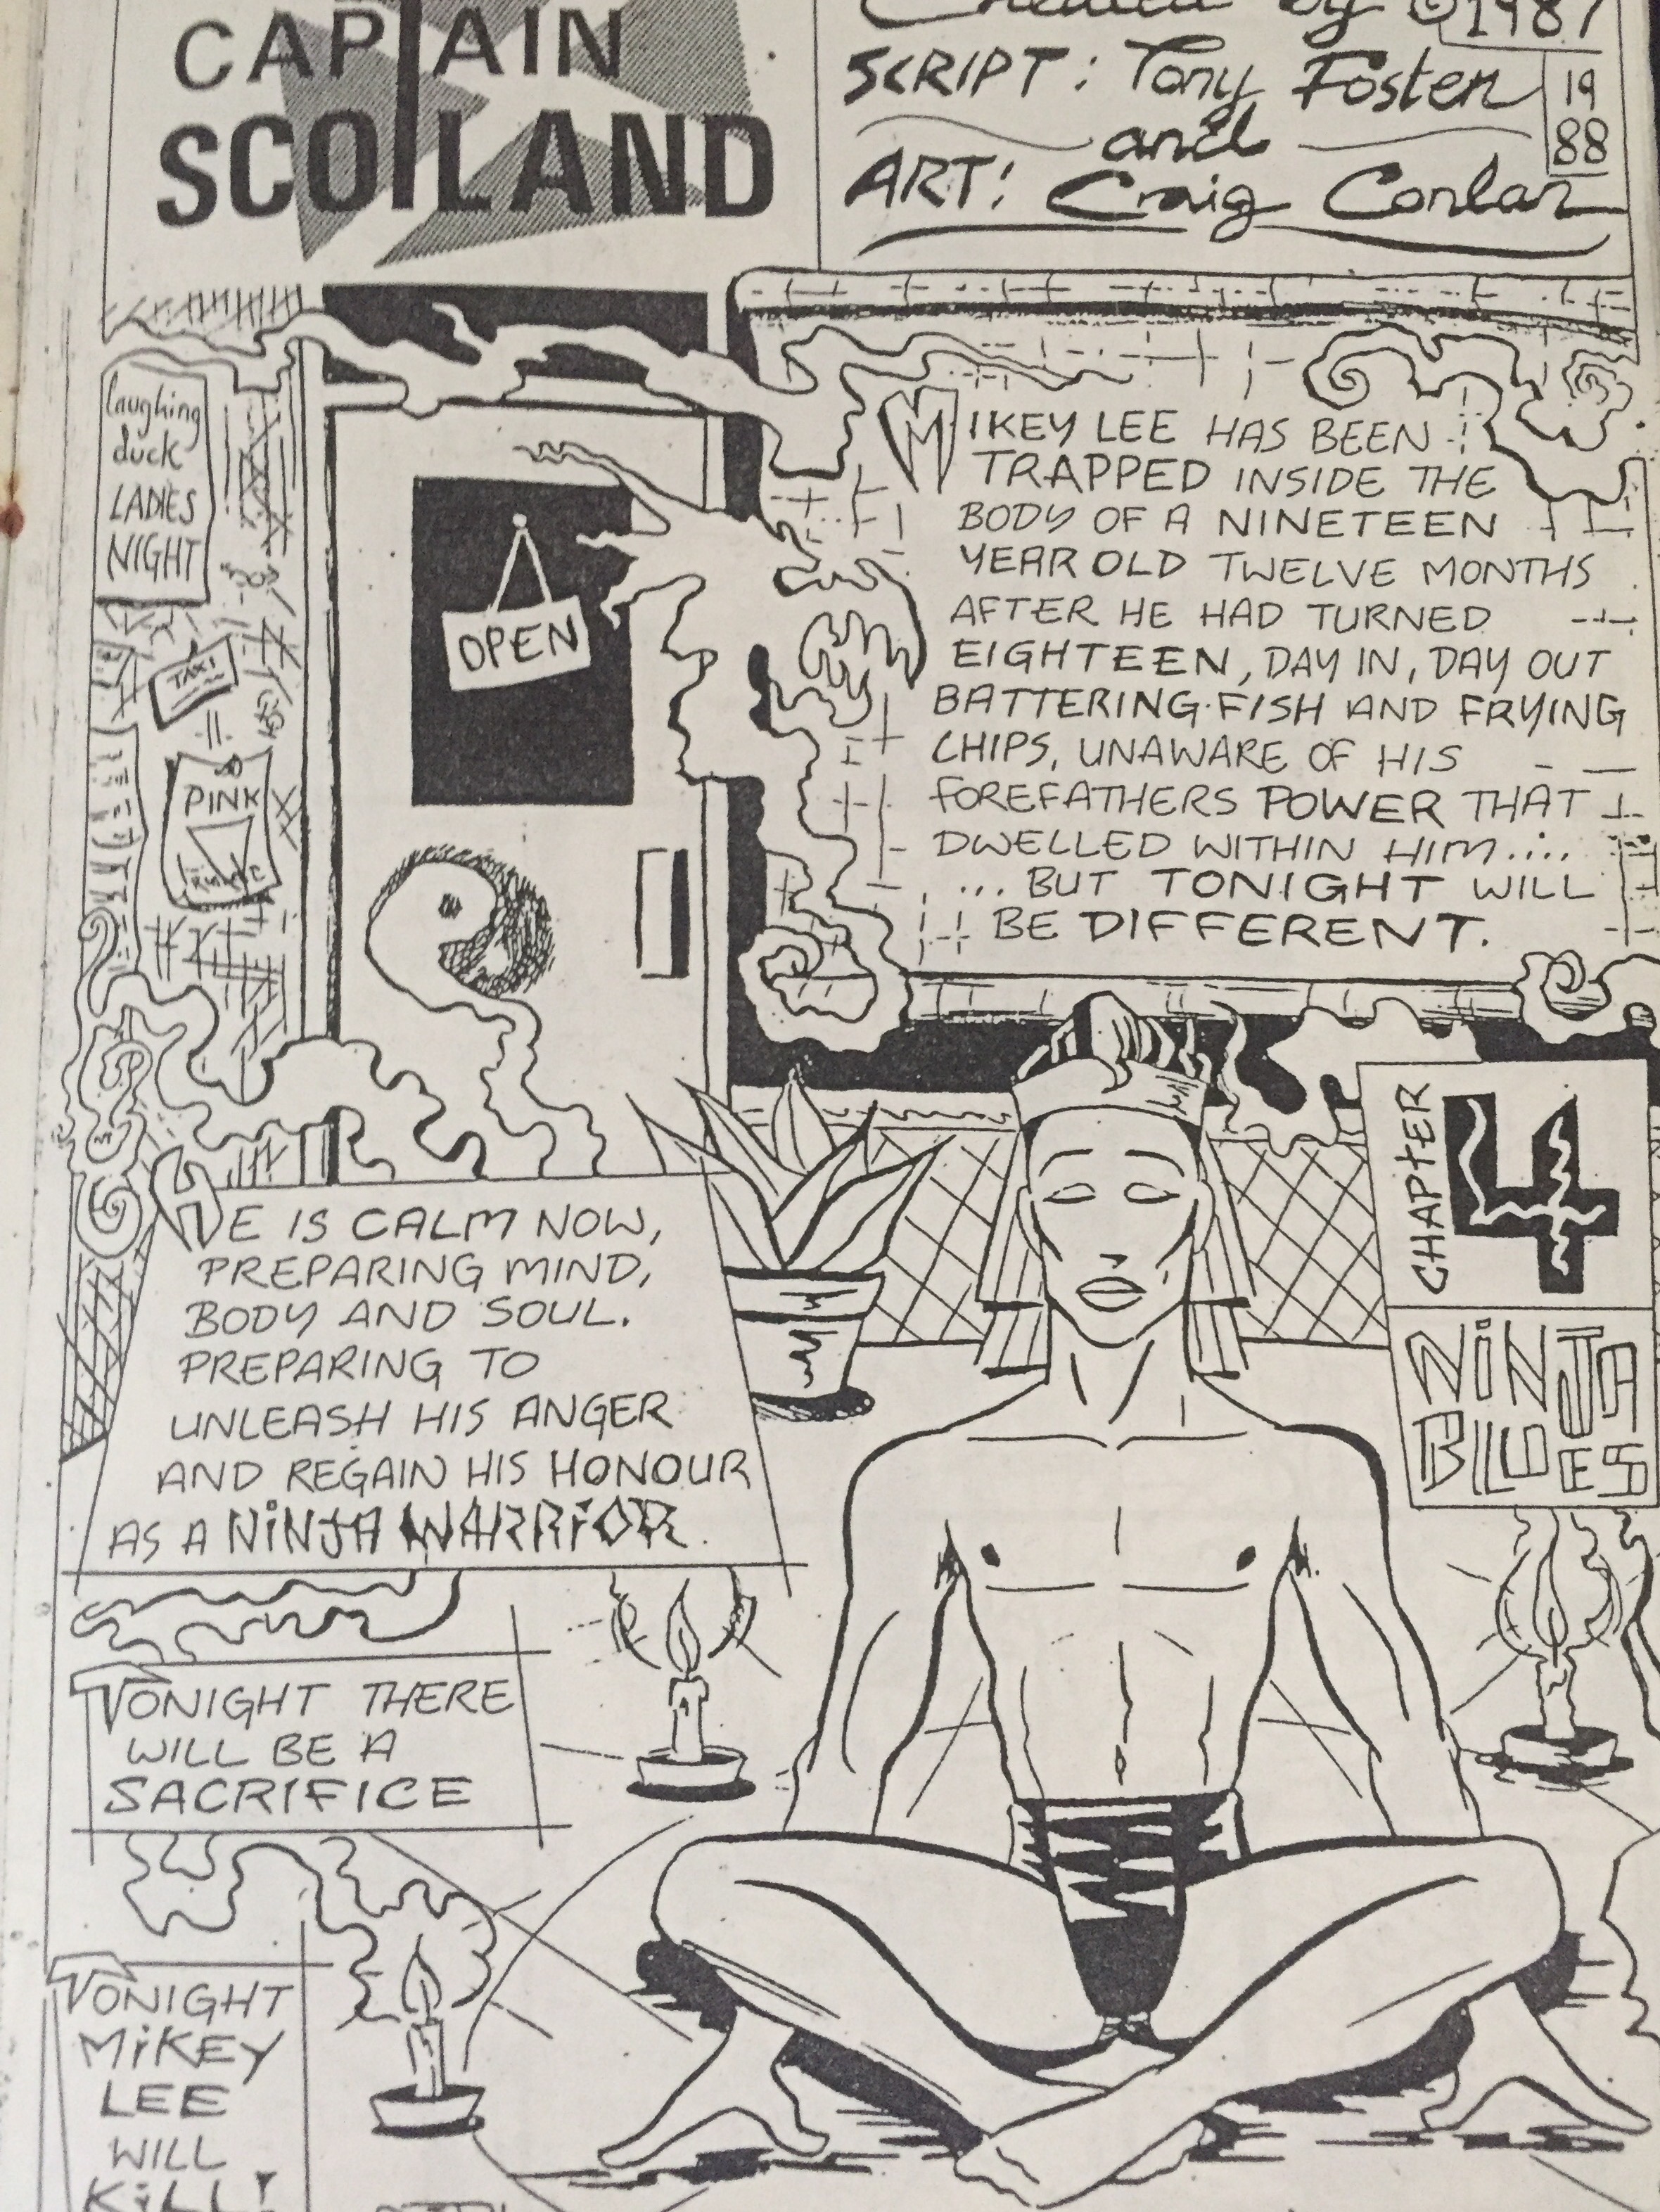 CAPTAIN
SCOTLAND
Created by © 1987
SCRIPT: Tony Foster
and
ART: Craig Conlan
19
88
laughing
duck
LADIES
NIGHT
TAXI
PINK
OPEN
MIKEY LEE HAS BEEN
TRAPPED INSIDE THE
BODY OF A NINETEEN
YEAR OLD TWELVE MONTHS
AFTER HE HAD TURNED
EIGHTEEN, DAY IN, DAY OUT
BATTERING FISH AND FRYING
CHIPS, UNAWARE OF HIS
FOREFATHERS POWER THAT
DWELLED WITHIN HIM.....
... BUT TONIGHT WILL
BE DIFFERENT.
CHAPTER
4
NINJA
BLUES
HE IS CALM NOW,
PREPARING MIND,
BODY AND SOUL.
PREPARING TO
UNLEASH HIS ANGER
AND REGAIN HIS HONOUR
AS A NINJA WARRIOR.
TONIGHT THERE
WILL BE A
SACRIFICE
TONIGHT
MIKEY
LEE
WILL
KILL!